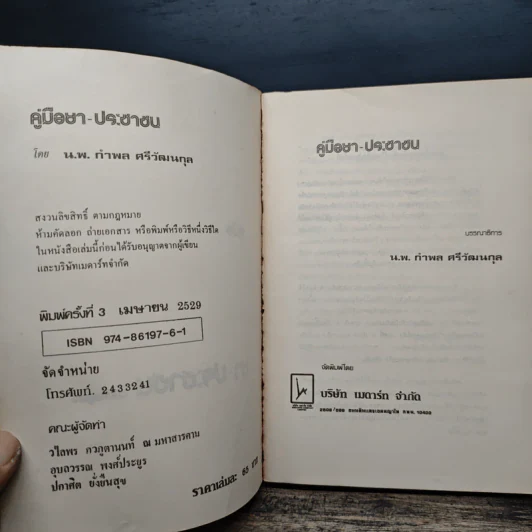 คู่มือยา-ประชาชน
โดย น.พ. กำพล ศรีวัฒนกุล
สงวนลิขสิทธิ์ ตามกฎหมาย
ห้ามคัดลอก ถ่ายเอกสาร หรือพิมพ์หรือวิธีหนึ่งวิธีใด
ในหนังสือเล่มนี้ก่อนได้รับอนุญาตจากผู้เขียน
และบริษัทเมดาร์ทจำกัด
พิมพ์ครั้งที่ 3 เมษายน 2529
ISBN 974-86197-6-1
จัดจำหน่าย
โทรศัพท์. 2433241
คณะผู้จัดทำ
วิไลพร ภวภูตานนท์ ณ มหาสารคาม
อุบลวรรณ พงศ์ประยูร
ปกาศิต ยั่งยืนสุข
ราคาเล่มละ 65 บาท
คู่มือยา-ประชาชน
บรรณาธิการ
น.พ. กำพล ศรีวัฒนกุล
จัดพิมพ์โดย
บริษัท เมดาร์ท จำกัด